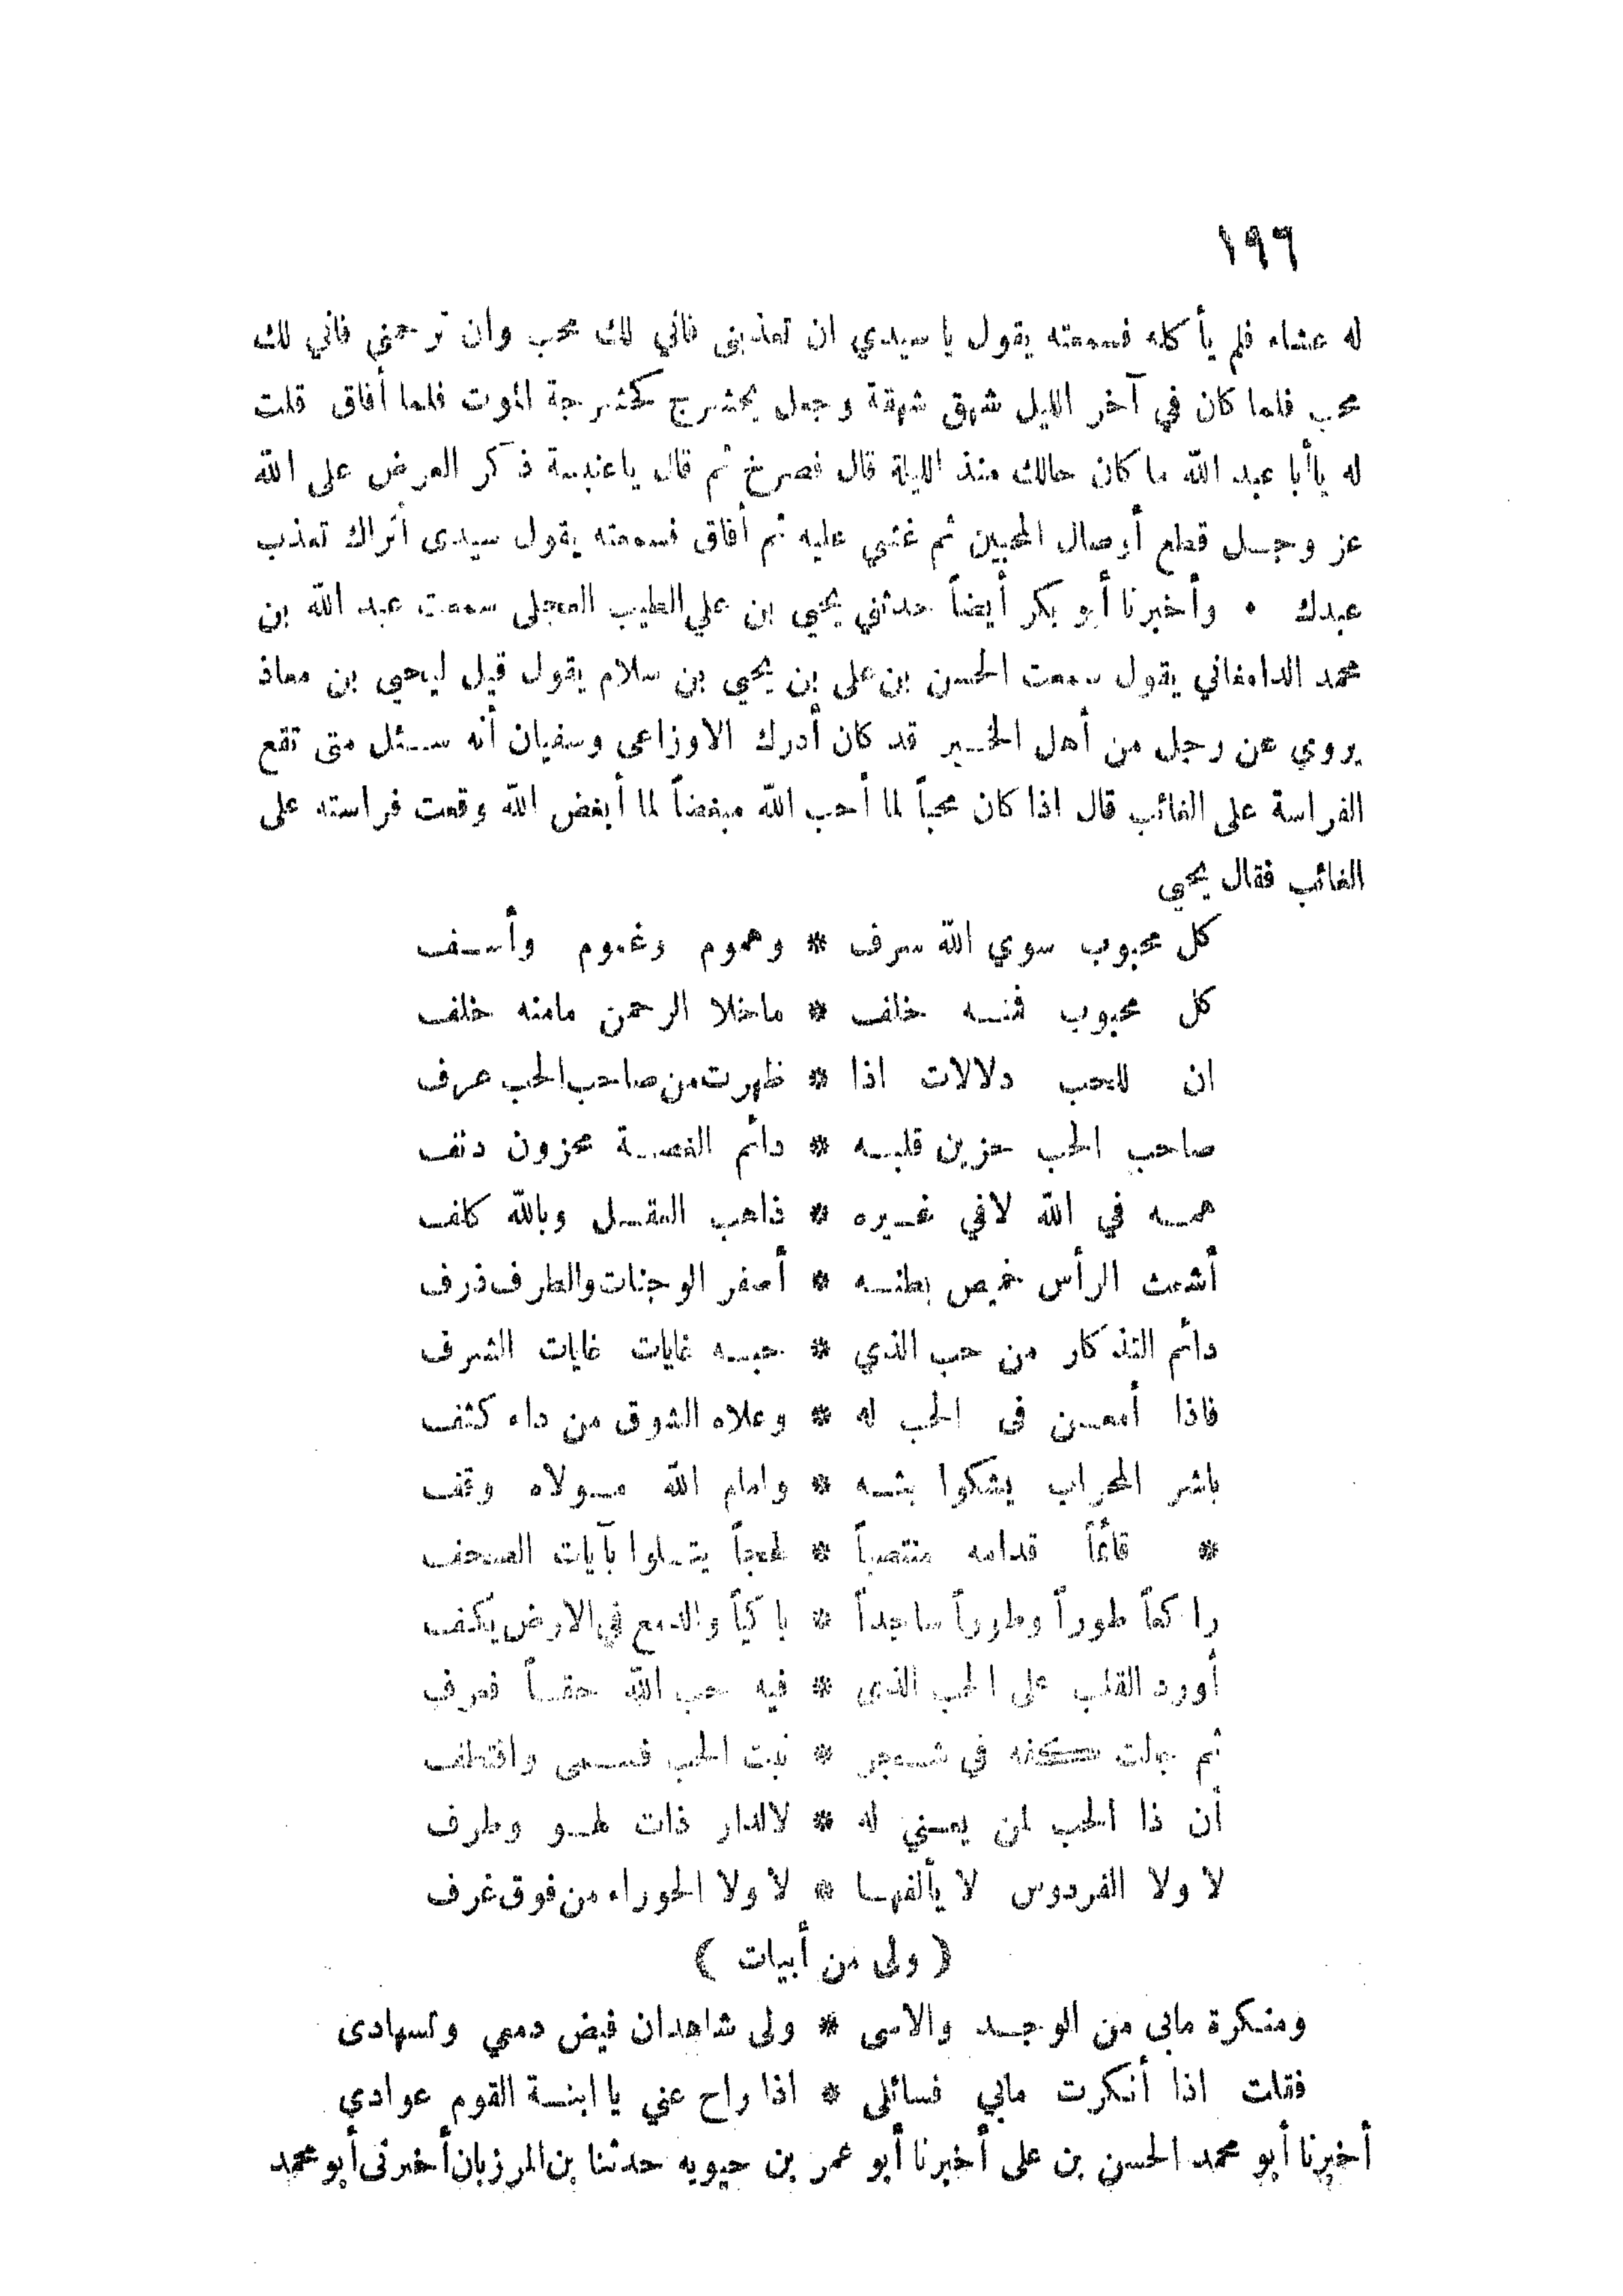 ١٩٦
له عشاء فلم يأكله فسمعته يقول يا سيدي ان تعذبنى فاني لك محب وان ترحمني فاني لك
محب فلما كان في آخر الليل شهق شهقة وجعل يحشرج كحشرجة الموت فلما أفاق قلت
له ياأبا عبد الله ما كان حالك منذ الليلة قال فصرخ ثم قال ياعنبسة ذكر العرض على الله
عز وجل قطع أوصال المحبين ثم غشي عليه ثم أفاق فسمعته يقول سيدى أتراك تعذب
عبدك • وأخبرنا أبو بكر أيضاً حدثني يحيى بن علي الطيب العجلى سمعت عبد الله بن
محمد الدامغاني يقول سمعت الحسن بن على بن يحيي بن سلام يقول قيل ليحيى بن معاذ
يروي عن رجل من أهل الخير قد كان أدرك الاوزاعى وسفيان أنه سئل متى تقع
الفراسة على الغائب قال اذا كان محباً لما أحب الله مبغضاً لما أبغض الله وقعت فراسته على
الغائب فقال يحيى
كل محبوب سوي الله سرف * وهموم وغموم وأسف
كل محبوب فمنه خلف * ماخلا الرحمن مامنه خلف
ان للحب دلالات اذا * ظهرت من صاحب الحب عرف
صاحب الحب حزين قلبه * دائم الغصة محزون دنف
همه في الله لافي غيره * ذاهب العقل وبالله كلف
أشعث الرأس خميص بطنه * أصفر الوجنات والطرف ذرف
دائم التذكار من حب الذي * حبه غايات غايات الشرف
فاذا أمعن فى الحب له * وعلاه الشوق من داء كثف
باشر المحراب يشكوا بثه * وامام الله مولاه وقف
* قائماً قدامه منتصباً * لهجاً يتلوا بآيات الصحف
راكعاً طوراً وطوراً ساجداً * باكياً والدمع في الارض يكف
أورد القلب على الحب الذى * فيه حب الله حقاً فعرف
ثم جالت كفه في شجر * نبت الحب فسمى واقتطف
أن ذا الحب لمن يعني له * لالدار ذات لهو وطرف
لا ولا الفردوس لا يألفها * لا ولا الحوراء من فوق غرف
( ولى من أبيات )
ومنكرة مابى من الوجد والاسى * ولى شاهدان فيض دمعي وتسهادى
فقلت اذا أنكرت مابي فسائلى * اذا راح عني يا ابنة القوم عوادي
أخبرنا أبو محمد الحسن بن على أخبرنا أبو عمر بن حيويه حدثنا بن المرزبان أخبرنى أبو محمد